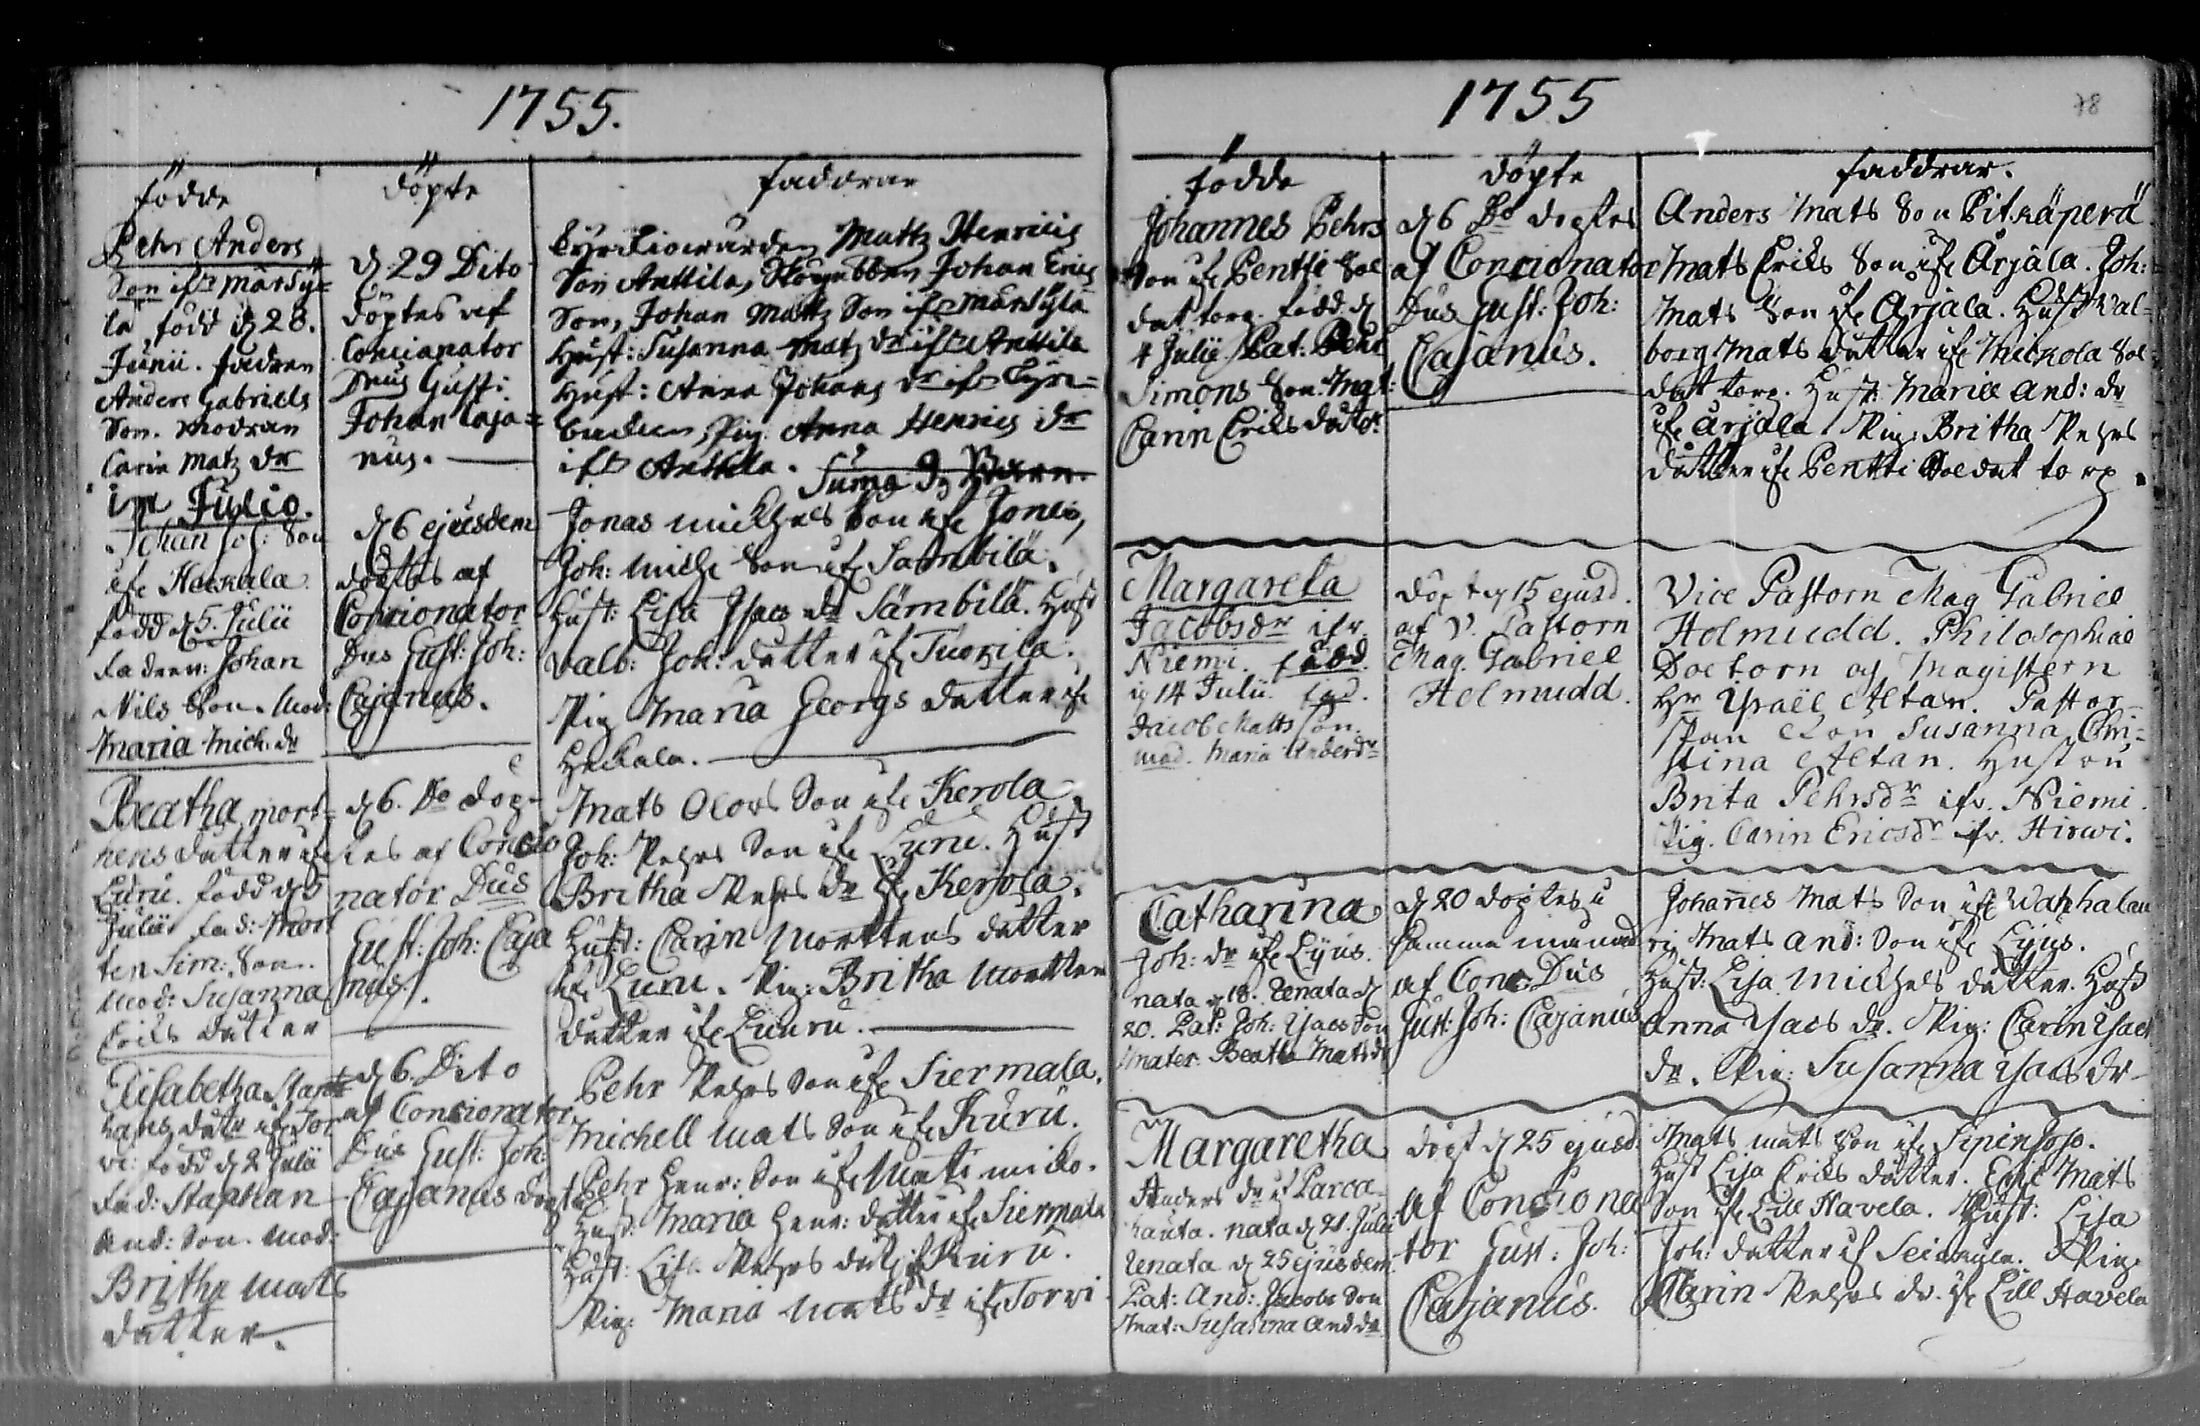 1755.
födde
döpte
faddrar
Pehr Anders
Son ifr Mårsy=
lä, född d 28.
Junii. fadren
Anders Gabriels
Son. Modran
Carin Matz dr
d 29 Dito
döptes af
Concianator
Dnus Gust:
Johan Caja=
nus.
Kyrkiowärden Mattz Henrics
Son Anttila, Johan Erics
Son, Johan Mattz Son ifr Mårsylä
Hust: Susanna Matz dr ifr Anttila
Hust: Anna Johans dr ifr
Pig. Anna Henrics dr
ifr Anttila. Suma 9 Barn.
in Julio.
Johan Joh: Son
ifr Heckala
född d 5. Julii
fadren: Johan
Nils Son. Mod:
Maria Mich: dr
d 6 ejusdem
döptes af
Concionator
Dnus Gust: Joh:
Cajanus.
Jonas Michels Son ifr
Joh: Mich: Son ifr Sämbilä.
Hust: Lisa Isacs dr Sämbilä. Hust
Valb: Joh: datter ifr Tuorila.
Pig Maria Georgs datter ifr
Heckala.
Beatha Mort=
tens datter ifr
Luru. född d 5
Julii fad: Mort
ten Sim: Son.
Mod: Susanna
Eriks datter
d 6. Do döp=
tes af Concio
nator Dnus
Gust: Joh: Caja
nus.
Mats Olovs Son ifr Kerola
Joh: Pehrs Son ifr Luru. Hust
Britha Pehrs dr ifr Kerola.
Hust: Carin Morttens datter
ifr Luru. Pig: Britha Mortten
datter ifr Luuru.
Elisabetha Staph
hans datr ifr Tor
vi: född d 2 Julii
fad: Staphan
And: Son. Mod:
Britha Mats
datter.
d 6 Dito
af Concionator
Dnus Gust: Joh:
Cajanus döpt
Pehr Pehrs Son ifr Siermala.
Michell Mats Son ifr Kuru.
Pehr Henr: Son ifr
Hust: Maria Henr: datter ifr Siermala
Hust: Lisa Pehrs datr ifr Kuru.
Pig: Maria Mats dr ifr Torvi
1755
78
födde
döpte
faddrar.
Johannes Pehrs
Son ifr Pentti Sol
dat torp. född d
4 Julii Pat. Pehr
Simons Son. Mat:
Carin Eriks datr
d 6 Do döptes
af Concionator
Dnus Gust: Joh:
Cajanus.
Anders Mats Son Pitkäperä
Mats Eriks Son ifr Ärjälä. Joh:
Mats Son ifr Ärjälä. Hust Val=
borg Mats datter ifr Mickola Sol=
dat torp. Hust: Maria And: dr
ifr Ärjälä. Pig: Britha Pehrs
datter ifr Pentti Soldat torp.
Margareta
Jacobsdr ifr
Niemi. född
d 14 Julii.
Jacob Matts son.
mod. Maria Andersdr
Döpt d 15 ejusd.
af V. Pastorn
Mag. Gabriel
Holmudd.
Vice Pastorn Mag Gabriel
Holmudd. Philosophiae
Doctorn og Magistern
Hr Israël Altan. Pastor=
skan Susanna Chri=
stina Altan. Hustru
Brita Pehrsdr ifr. Niemi.
Pig. Carin Ericsdr ifr. Hirwi.
Catharina
Joh: dr ifr Lyus.
nata d 18. Renata d
20. Pat: Joh: Isacs Son
Mater: Beatha Mats dr
d 20 döptes i
samma månad
af Conc: Dnus
Gust: Joh: Cajanus
Johannes Mats Son ifr
Mats And: Son ifr Lyus.
Hust: Lisa Michels datter. Hust
Anna Isacs dr. Pig: Carin Isacs
dr. Pig: Susanna Isacs dr
Margaretha
Anders dr ifr Parca=
hauta. nata d 21. Julii
Renata d 25 ejusdem
Pat: And: Jacobs Son
Mat: Susanna And dr
Döpt d 25 ejusd.
af Conciona
tor Gust: Joh:
Cajanus.
Mats Mats Son ifr
Hust Lisa Eriks datter. Eric Mats
Son ifr Lill Havela. Hust: Lisa
Joh: datter ifr Pig:
Carin Pehrs dr. ifr Lill Havela